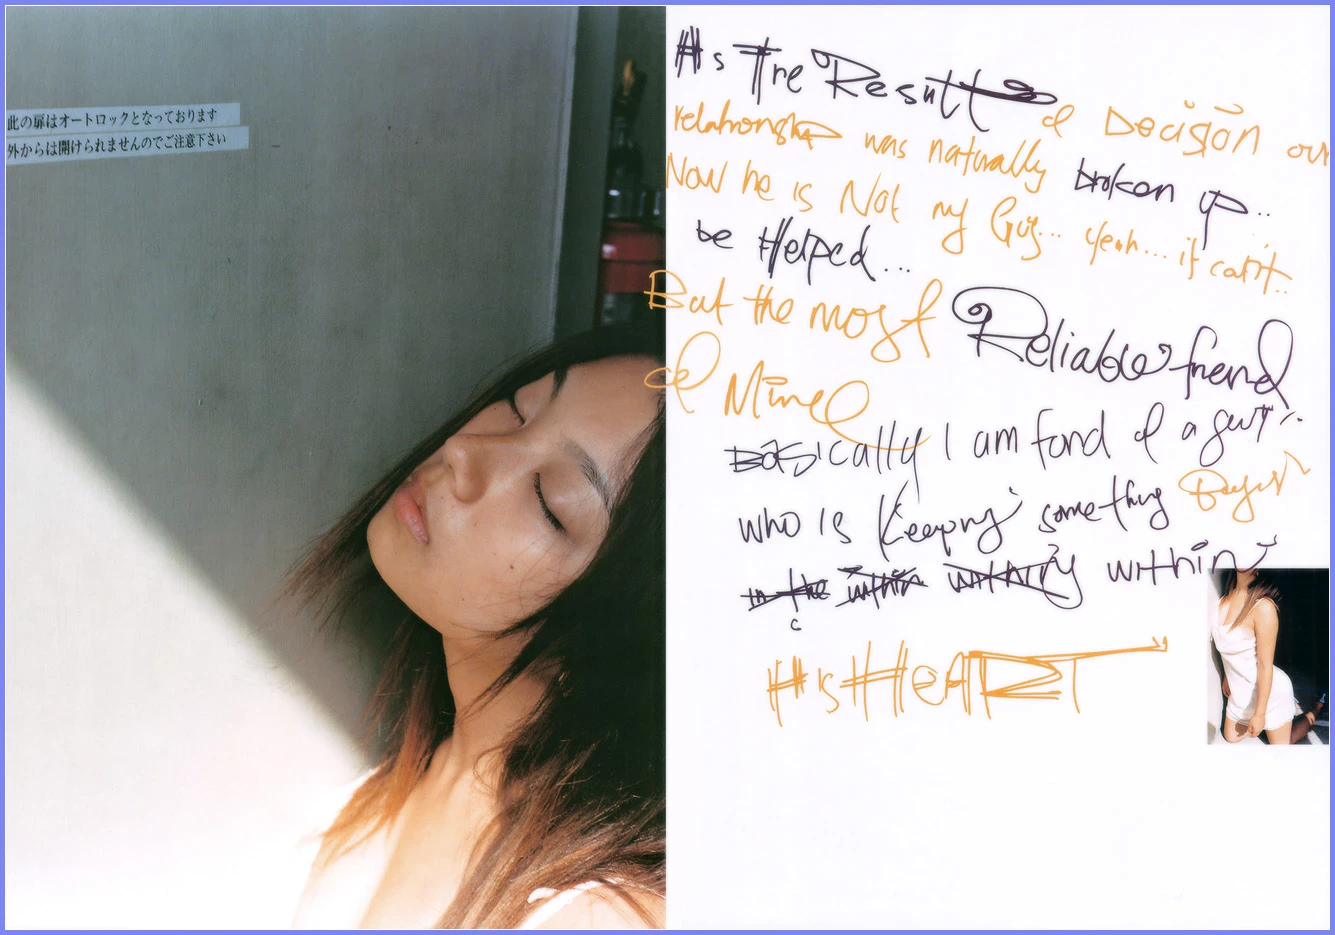 此の扉はオートロックとなっております
外からは開けられませんのでご注意下さい
As The Result of Decision our
relationship was naturally broken up..
Now he is Not my Guy... yeah... it can't..
be Helped...
But the most Reliable friend
of Mine
Basically I am fond of a guy
who is Keeping something
in the within within
His HeART